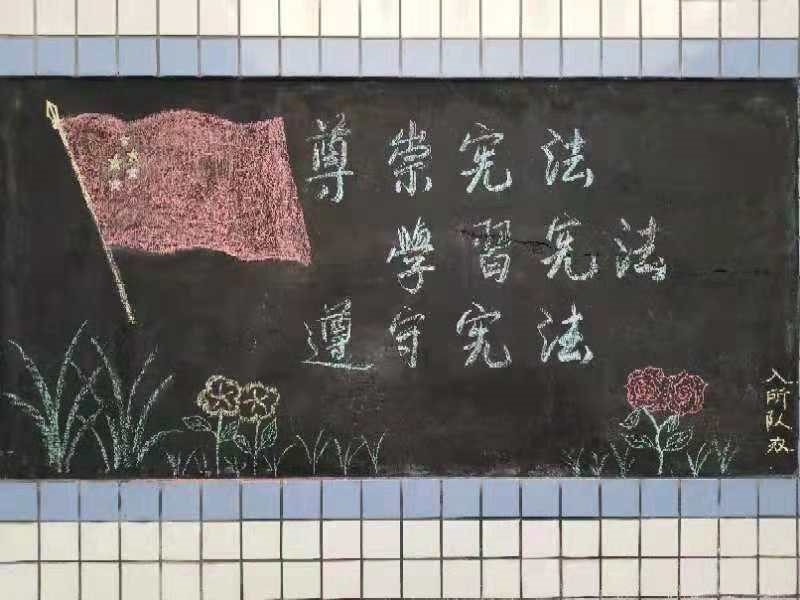 尊崇宪法
學習宪法
遵守宪法
入所队宣